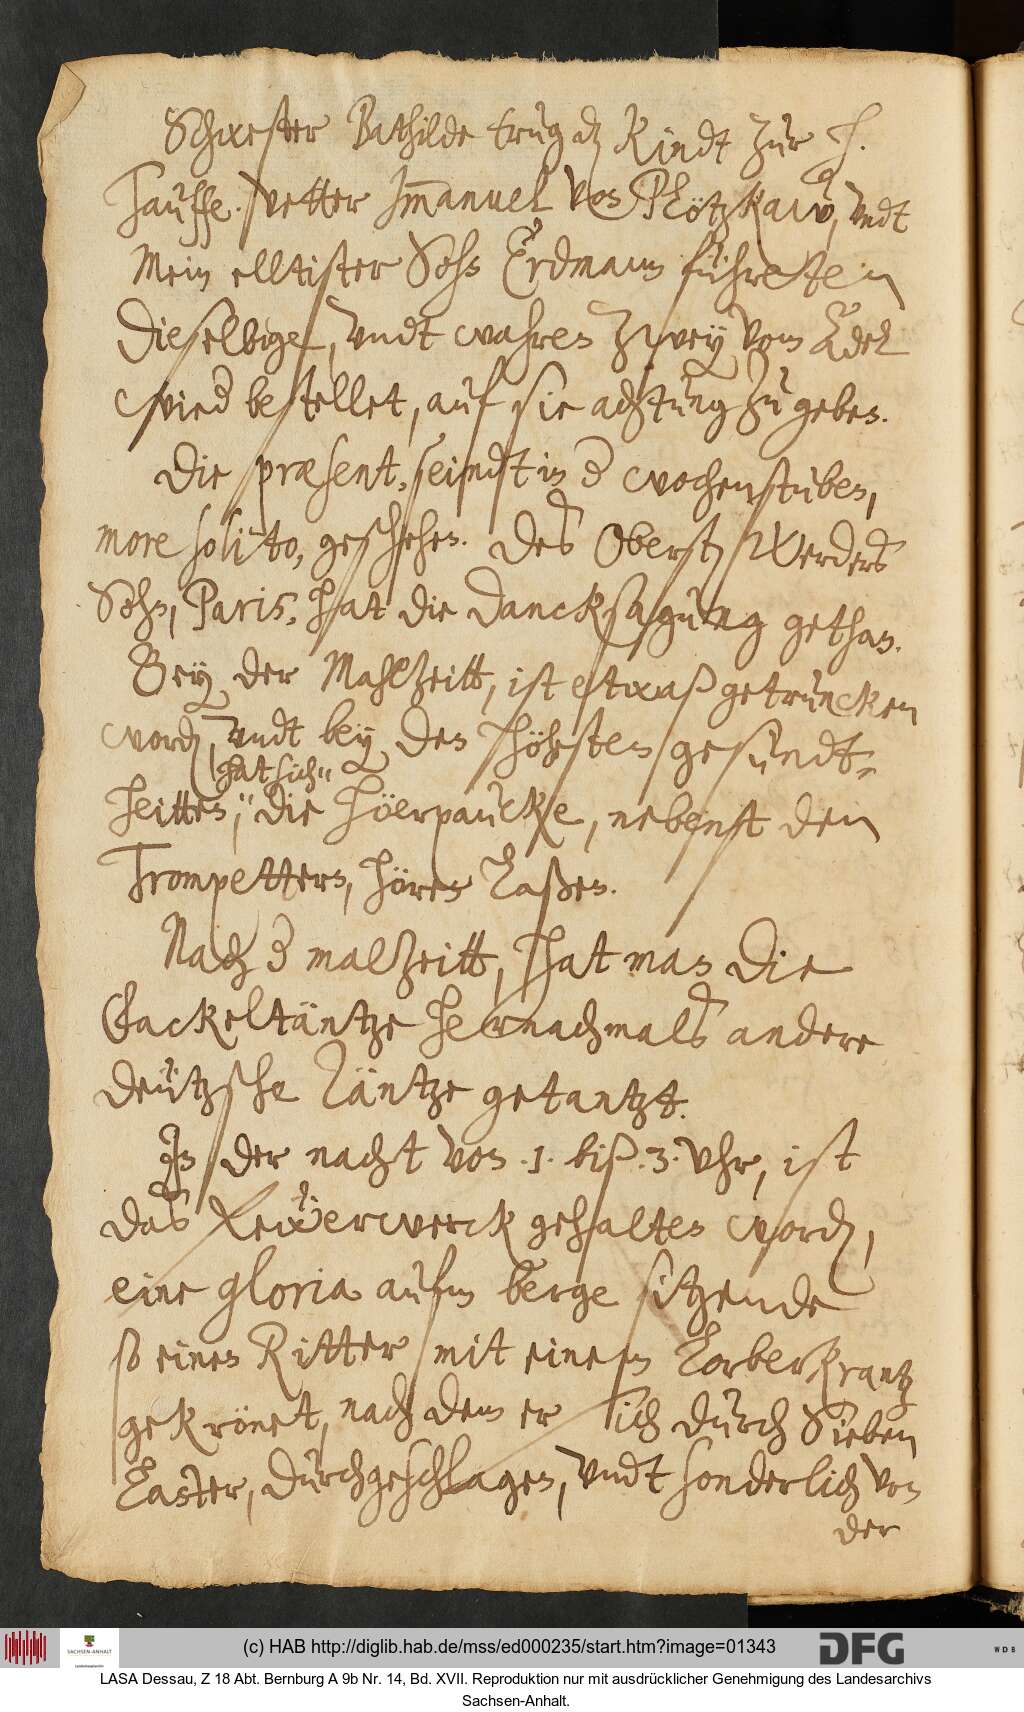 Schwester Bathilde trug dz Kindt zur H.
Tauffe. Vetter Im̄anuel von Plötzkaw, vndt
Mein elltister Sohn Erdmann führeten
dieselbige, vndt wahren zwey vom Adel
wied bestellet, auf sie achtung zu geben.
Die præsent, seindt in d wochenstuben,
more solito, geschehen. Des Oberst Werders
Sohn, Paris, hat die dancksagung gethan.
Bey der Mahlzeitt, ist etwaß getruncken
word, vndt bey den höhesten gesundt=
hat sich"
heitten," die Höerpaucke, nebenst den
Trompetters, hören laßen.
Nach d malzeitt, hat man die
Fackeltäntze hernachmals andere
deützsche Täntze getantzt.
In der nacht von .1. biß .3. Vhr, ist
das Fewerwerck gehalten word,
eine gloria aufm berge sitzende
so einen Ritter mit einem Lorberkrantz
gekrönet, nach dem er sich durch Sieben
Laster, durchgeschlagen, vndt sonderlich von
der
(c) HAB http://diglib.hab.de/mss/ed000235/start.htm?image=01343
SACHSEN-ANHALT
DFG
WDB
LASA Dessau, Z 18 Abt. Bernburg A 9b Nr. 14, Bd. XVII. Reproduktion nur mit ausdrücklicher Genehmigung des Landesarchivs
Sachsen-Anhalt.